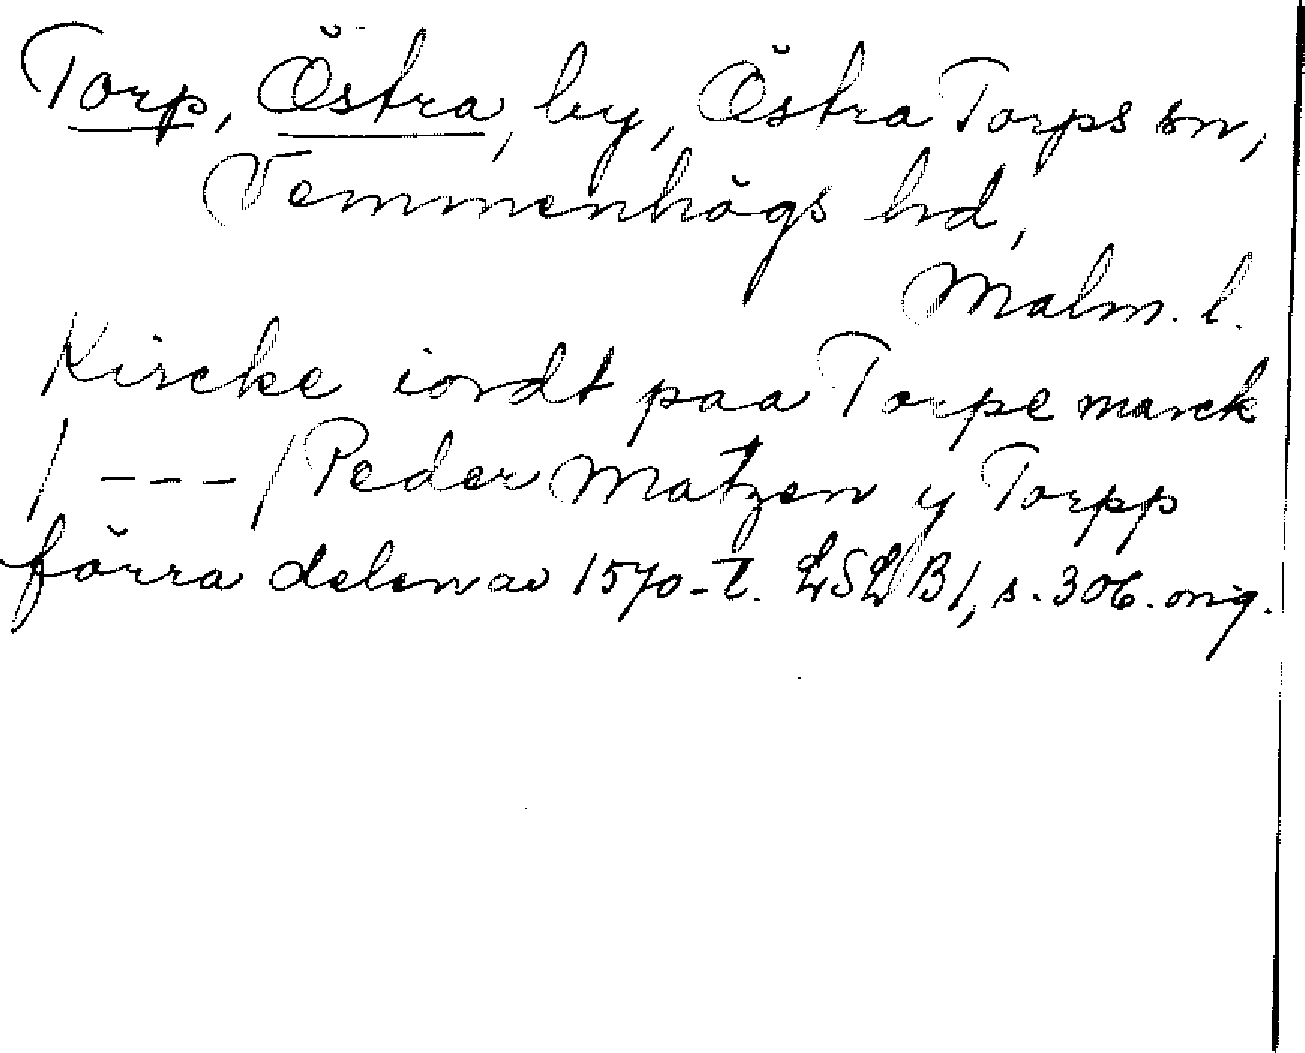 Torp, Östra, by, Östra Torps sn,
Vemmenhögs hd,
Malm. l.
Kircke iordt paa Torpe marck
/ --- / Peder Matzen y Torpp
förra delen av 1570-t. LSLB 1, s. 306. orig.